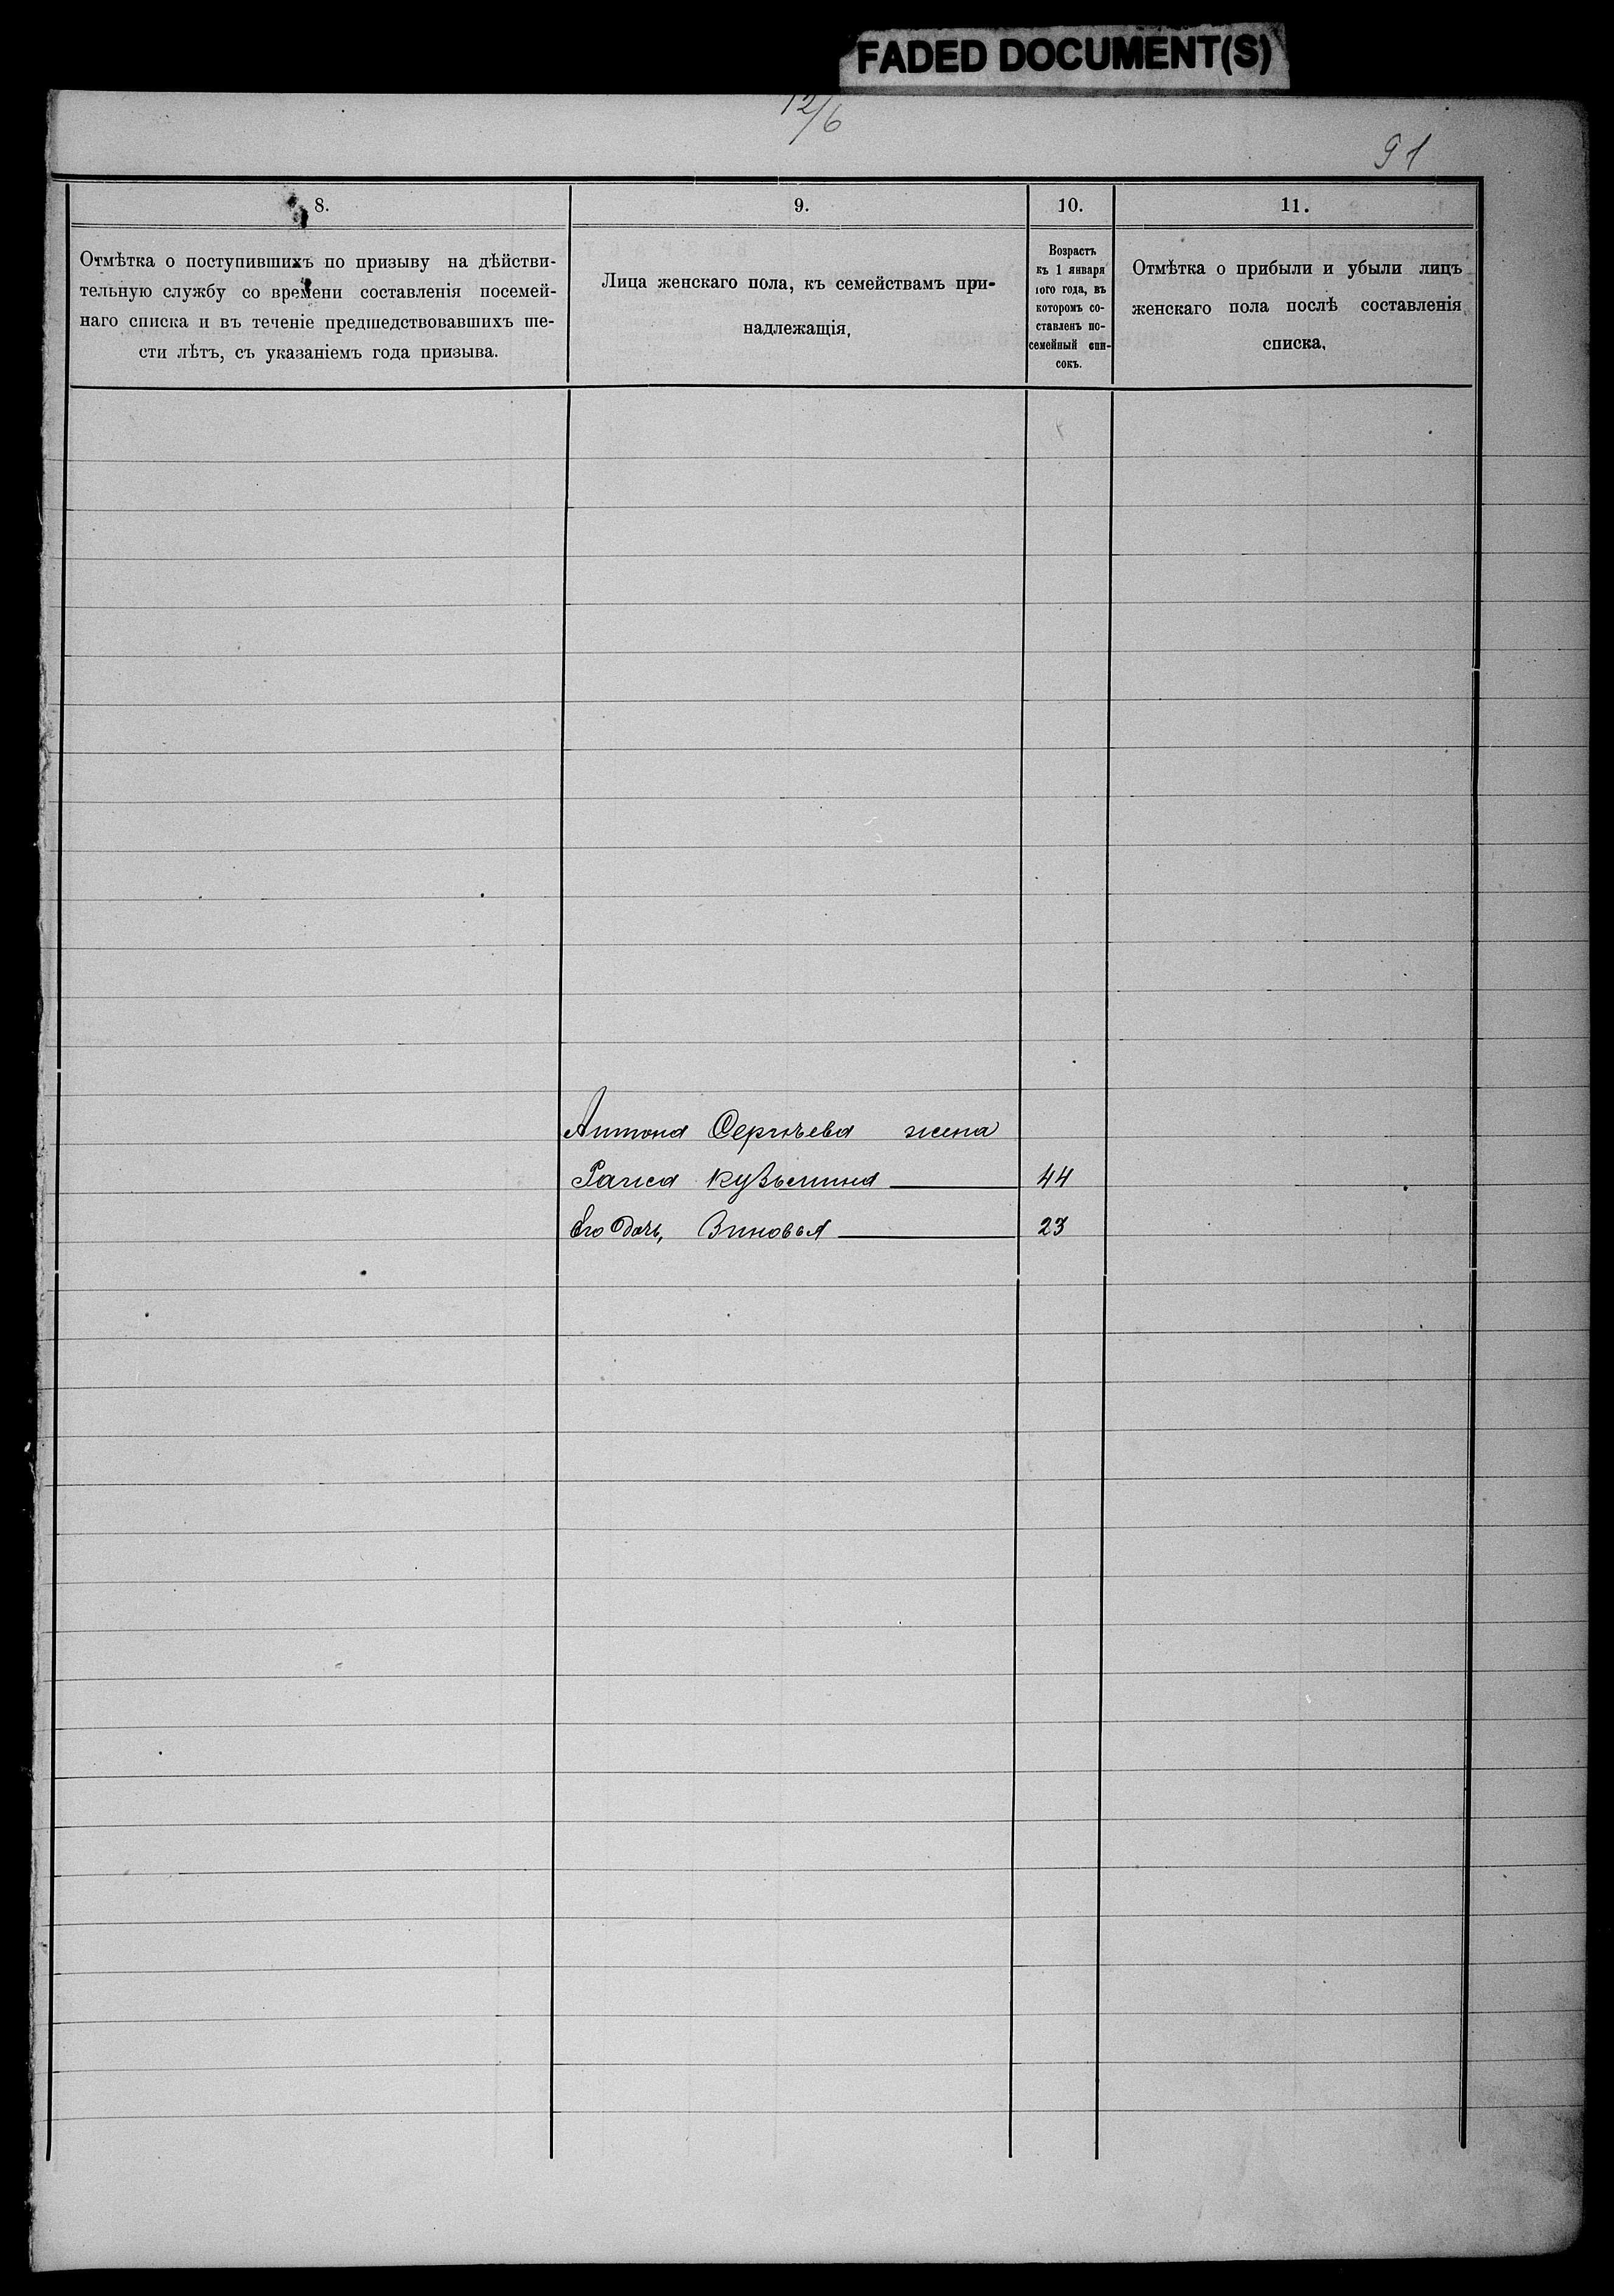 FADED DOCUMENT(S)
12/6
91
8.
Отмѣтка о поступившихъ по призыву на дѣйстви-
тельную службу со времени составленія посемей-
наго списка и въ теченіе предшедствовавшихъ ше-
сти лѣтъ, съ указаніемъ года призыва.
9.
Лица женскаго пола, къ семействамъ при-
надлежащія,
10.
Возрастъ
къ 1 января
того года, въ
которомъ со-
ставленъ по-
семейный спи-
сокъ.
11.
Отмѣтка о прибыли и убыли лицъ
женскаго пола послѣ составленія
списка.
Антона Сергѣева жена
Раиса Кузьмина 44
Его дочь, Зиновья 23